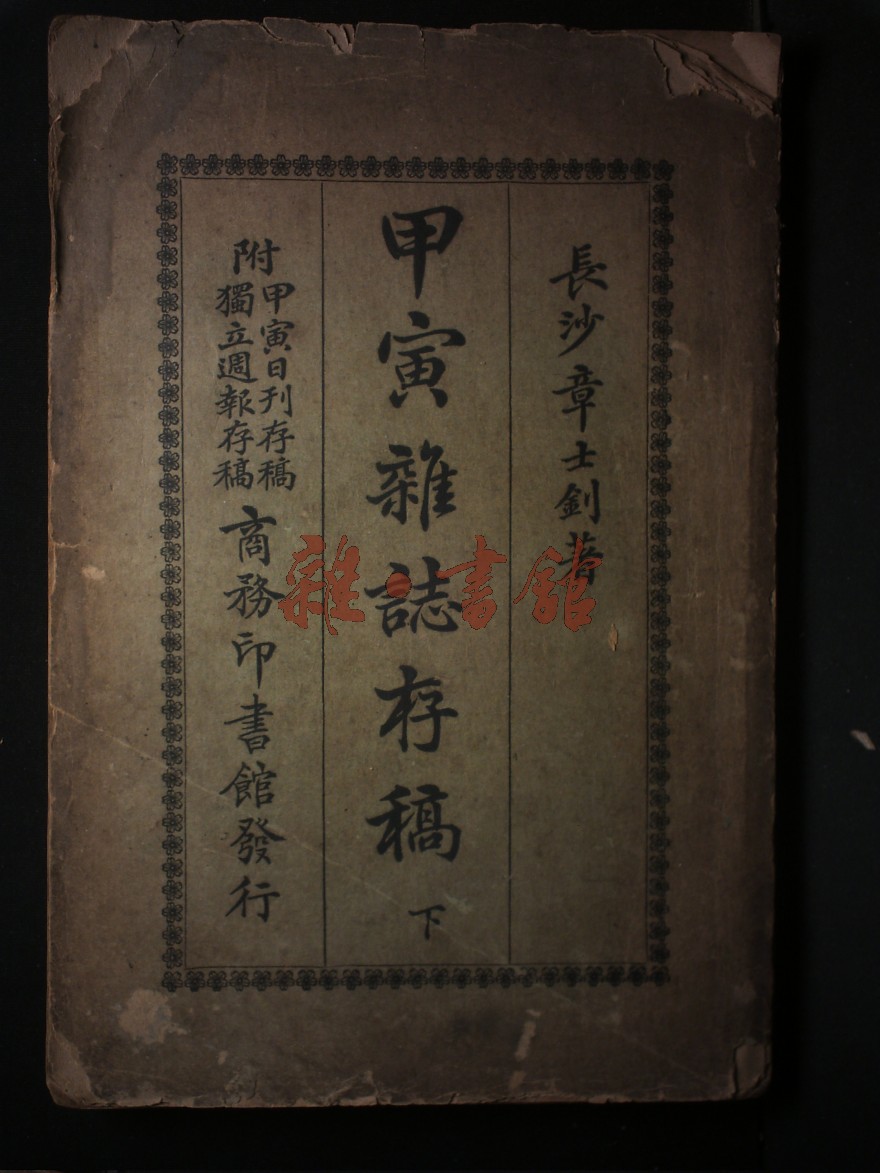 長沙章士釗著
甲寅雜誌存稿 下
附
甲寅日刊存稿
獨立週報存稿
商務印書館發行
雜·書館